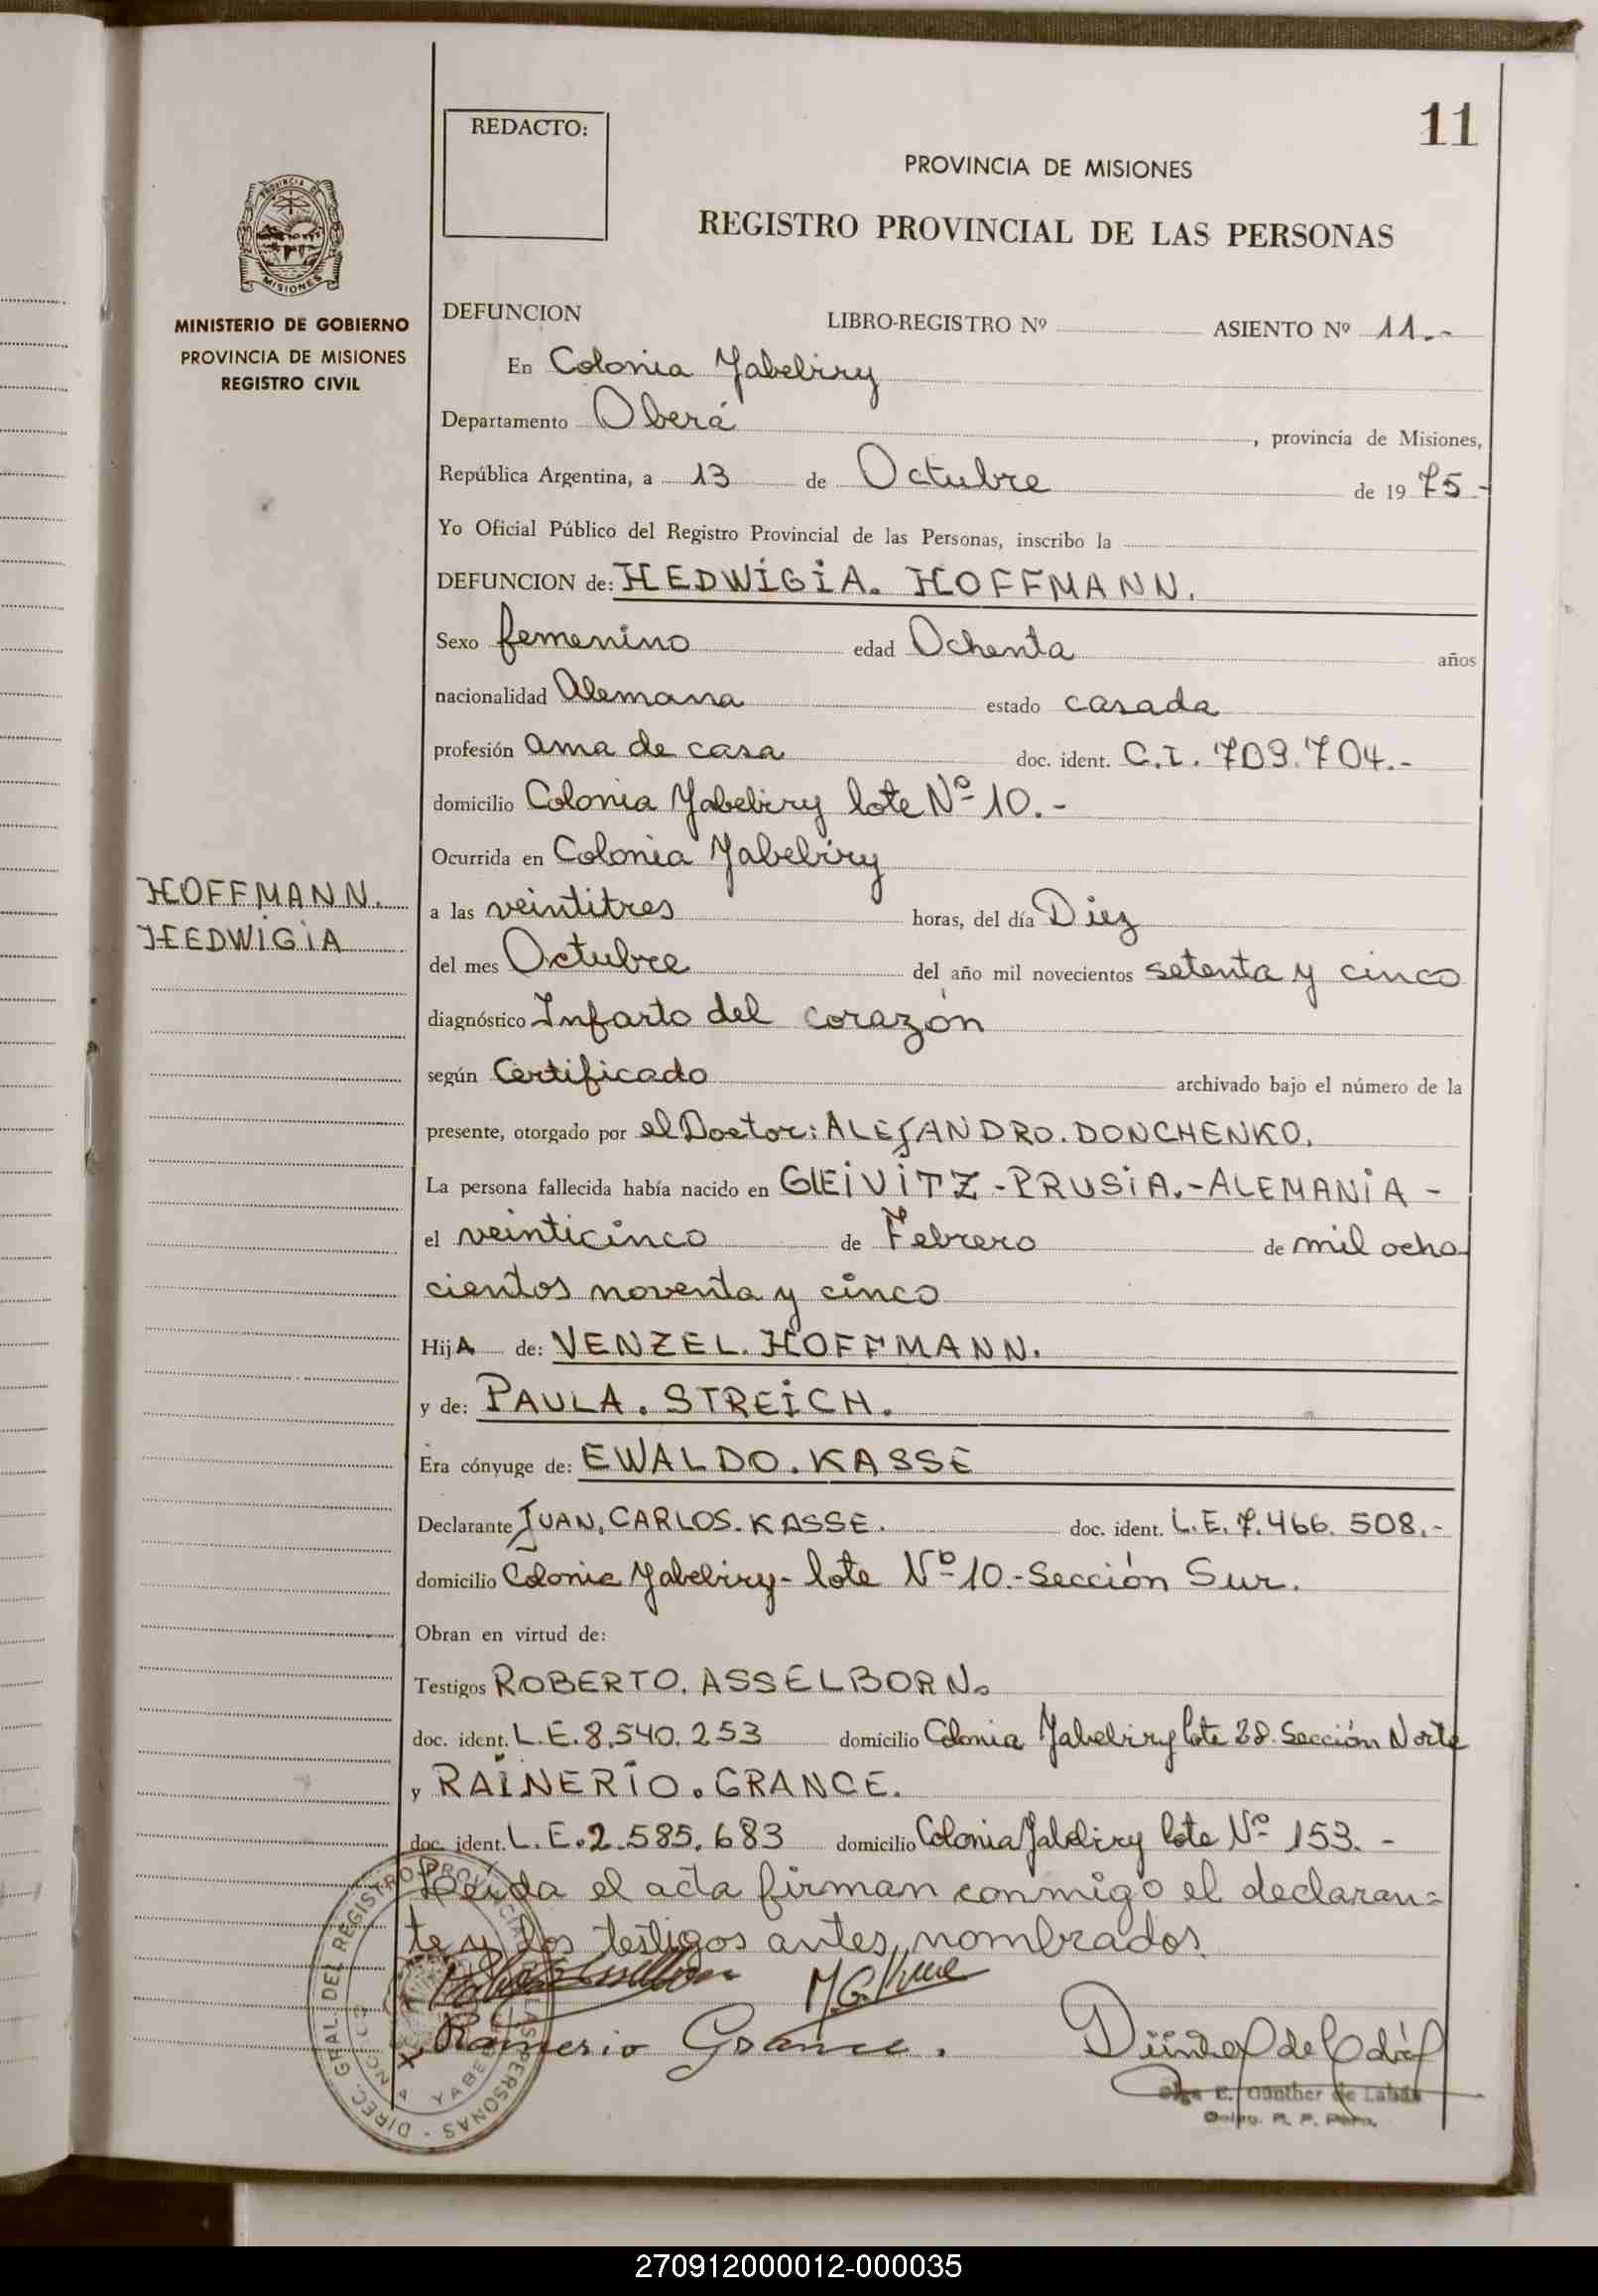 11
REDACTO:
PROVINCIA DE MISIONES
REGISTRO PROVINCIAL DE LAS PERSONAS
PROVINCIA DE
MISIONES
MINISTERIO DE GOBIERNO
PROVINCIA DE MISIONES
REGISTRO CIVIL
DEFUNCION LIBRO-REGISTRO Nº ASIENTO Nº 11.-
En Colonia Yabebiry
Departamento Oberá, provincia de Misiones,
República Argentina, a 13 de Octubre de 1975-
Yo Oficial Público del Registro Provincial de las Personas, inscribo la
DEFUNCION de: HEDWIGIA. HOFFMANN.
Sexo femenino edad Ochenta años
nacionalidad Alemana estado casada
profesión ama de casa doc. ident. C.I. 709.704.-
domicilio Colonia Yabebiry lote Nº 10.-
Ocurrida en Colonia Yabebiry
HOFFMANN.
HEDWIGIA
a las veintitres horas, del día Diez
del mes Octubre del año mil novecientos setenta y cinco
diagnóstico Infarto del corazón
según Certificado archivado bajo el número de la
presente, otorgado por el Doctor: ALEJANDRO. DONCHENKO.
La persona fallecida había nacido en GLEIVITZ-PRUSIA.-ALEMANIA-
el veinticinco de Febrero de mil ocho
cientos noventa y cinco
HijA de: VENZEL. HOFFMANN.
y de: PAULA. STREICH.
Era cónyuge de: EWALDO. KASSE
Declarante JUAN. CARLOS. KASSE. doc. ident. L.E. 7.466.508.-
domicilio Colonia Yabebiry- lote Nº 10.- Sección Sur.
Obran en virtud de:
Testigos ROBERTO. ASSELBORN.
doc. ident. L.E. 8.540.253 domicilio Colonia Yabebiry lote 28. Sección Norte
y RAINERIO. GRANCE.
doc. ident. L.E. 2.585.683 domicilio Colonia Yabebiry lote Nº 153.-
Leída el acta firman conmigo el declaran=
te y los testigos antes nombrados.
Ramerio Grance.
E. Günther de Labás
DIREC. GRAL. DEL REGISTRO PROVINCIAL DE LAS PERSONAS
270912000012-000035